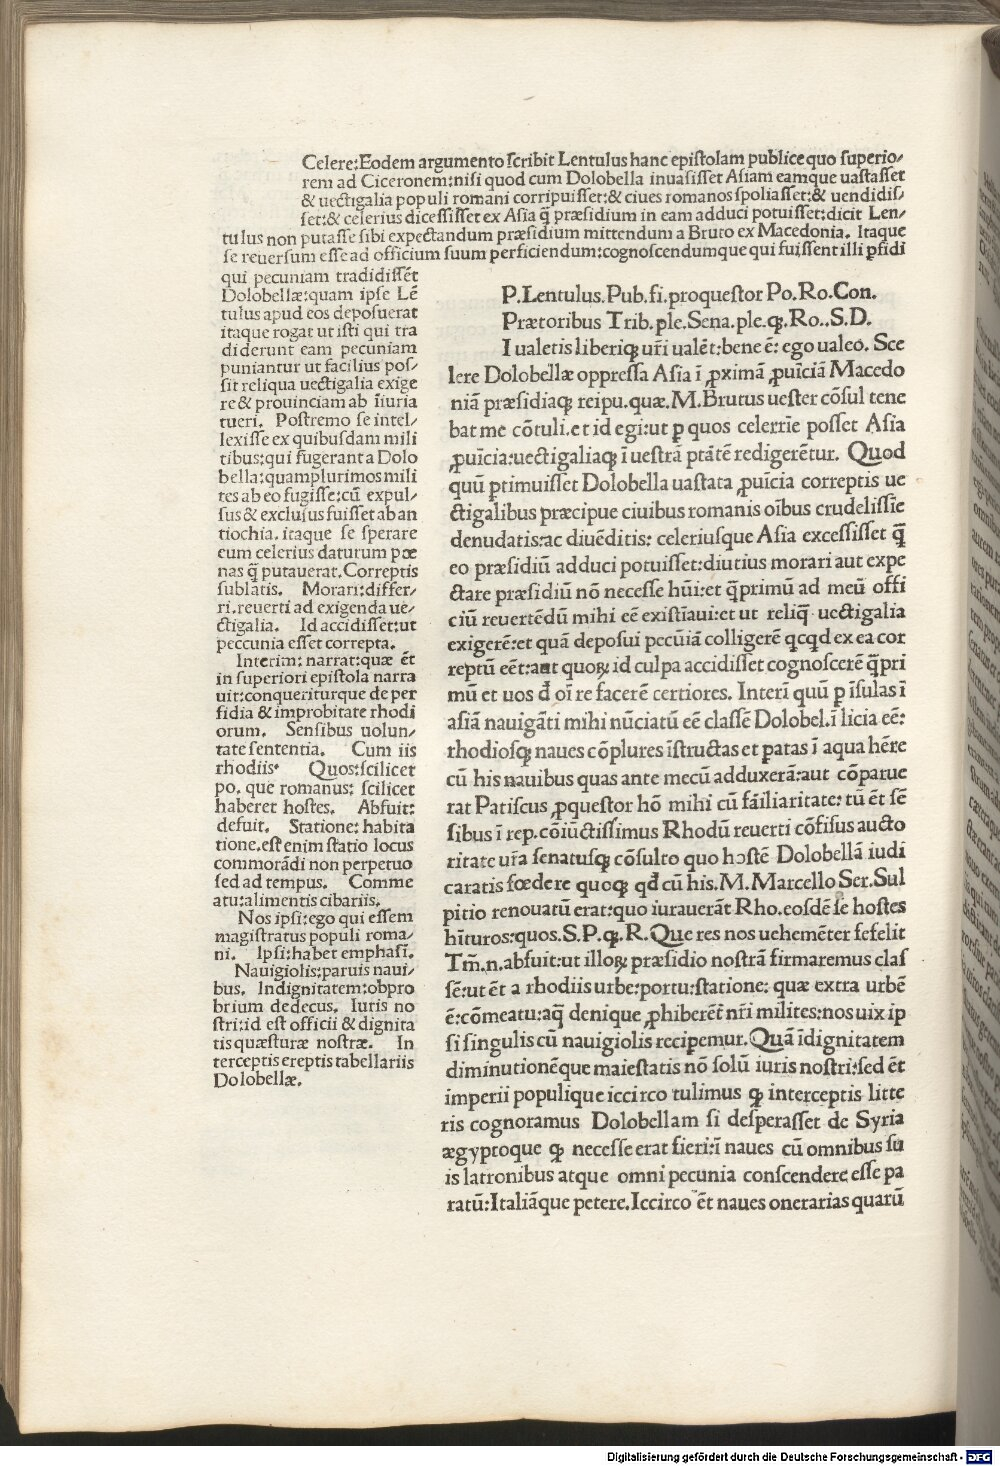 Celere:Eodem argumento scribit Lentulus hanc epistolam publice quo superio/
rem ad Ciceronem:nisi quod cum Dolobella inuasisset Asiam eamque uastasset
& uectigalia populi romani corripuisset:& ciues romanos spoliasset:& uendidis/
set:& celerius dicessisset ex Asia q̄ præsidium in eam adduci potuisset:dicit Len/
tulus non putasse sibi expectandum præsidium mittendum a Bruto ex Macedonia. Itaque
se reuersum esse ad officium suum perficiendum:cognoscendumque qui fuissent illi ꝑfidi
qui pecuniam tradidissēt
Dolobellæ:quam ipse Lē
tulus apud eos deposuerat
itaque rogat ut isti qui tra
diderunt eam pecuniam
puniantur ut facilius pos/
sit reliqua uectigalia exige
re & prouinciam ab īiuria
tueri. Postremo se intel/
lexisse ex quibusdam mili
tibus:qui fugerant a Dolo
bella:quamplurimos mili
tes ab eo fugisse:cū expul/
sus & exclusus fuisset ab an
tiochia. itaque se sperare
eum celerius daturum pœ
nas q̄ putauerat. Correptis
sublatis. Morari:differ/
ri.reuerti ad exigenda ue/
ctigalia. Id accidisset:ut
peccunia esset correpta.
Interim: narrat:quæ ēt
in superiori epistola narra
uit:conqueriturque de per
fidia & improbitate rhodi
orum. Sensibus uolun/
tate sententia. Cum iis
rhodiis. Quos:scilicet
po. que romanus: scilicet
haberet hostes. Abfuit:
defuit. Statione: habita
tione.est enim statio locus
commorādi non perpetuo
sed ad tempus. Comme
atu:alimentis cibariis.
Nos ipsi:ego qui essem
magistratus populi roma/
ni. Ipsi:habet emphasī.
Nauigiolis:paruis naui/
bus. Indignitatem:obpro
brium dedecus. Iuris no
stri:id est officii & dignita
tis quæsturæ nostræ. In
terceptis ereptis tabellariis
Dolobellæ.
P.Lentulus.Pub.fi.proquestor Po.Ro.Con.
Prætoribus Trib.ple.Sena.ple.ꝗ.Ro..S.D.
I ualetis liberiꝗ ur̄i ualēt:bene ē: ego ualeo. Sce
lere Dolobellæ oppressa Asia ī ꝓximā ꝓuīciā Macedo
niā præsidiaꝗ reipu.quæ.M.Brutus uester cōsul tene
bat me cōtuli.et id egi:ut ꝑ quos celerrīe posset Asia
ꝓuīcia:uectigaliaꝗ ī uestrā ptātē redigerētur. Quod
quū ꝑtimuisset Dolobella uastata ꝓuīcia correptis ue
ctigalibus præcipue ciuibus romanis oībus crudelissīe
denudatis:ac diuēditis: celeriusque Asia excessisset q̄
eo præsidiū adduci potuisset:diutius morari aut expe
ctare præsidiū nō necesse hūi:et q̄primū ad meū offi
ciū reuertēdū mihi eē existīaui:et ut reliq̄ uectigalia
exigerē:et quā deposui pecūiā colligerē qcqd ex ea cor
reptū eēt:aut quoꝝ id culpa accidisset cognoscerē q̄pri
mū et uos đ oī re facerē certiores. Interī quū ꝑ īsulas ī
asiā nauigāti mihi nūciatū eē classē Dolobel.ī licia eē:
rhodiosꝗ naues cōplures īstructas et ꝑatas ī aqua hēre
cū his nauibus quas ante mecū adduxerā:aut cōparue
rat Patiscus ꝓquestor hō mihi cū fāiliaritate: tū ēt sē
sibus ī rep.cōiūctissimus Rhodū reuerti cōfisus aucto
ritate ur̄a senatusꝗ cōsulto quo hostē Dolobellā iudi
caratis fœdere quoꝗ qđ cū his.M.Marcello Ser.Sul
pitio renouatū erat:quo iurauerāt Rho.eosdē se hostes
hīturos:quos.S.P.ꝗ.R.Que res nos uehemēter fefelit
Tm̄.n.abfuit:ut illoꝝ præsidio nostrā firmaremus clas
sē:ut ēt a rhodiis urbe:portu:statione: quæ extra urbē
ē:cōmeatu:aq̄ denique ꝓhiberēt nr̄i milites:nos uix ip
si singulis cū nauigiolis recipemur. Quā īdignitatem
diminutionēque maiestatis nō solū iuris nostri:sed ēt
imperii populique iccirco tulimus ꝙ interceptis litte
ris cognoramus Dolobellam si desperasset de Syria
ægyptoque ꝙ necesse erat fieri:ī naues cū omnibus su
is latronibus atque omni pecunia conscendere esse pa
ratū:Italiāque petere.Iccirco ēt naues onerarias quarū
Digitalisierung gefördert durch die Deutsche Forschungsgemeinschaft - DFG